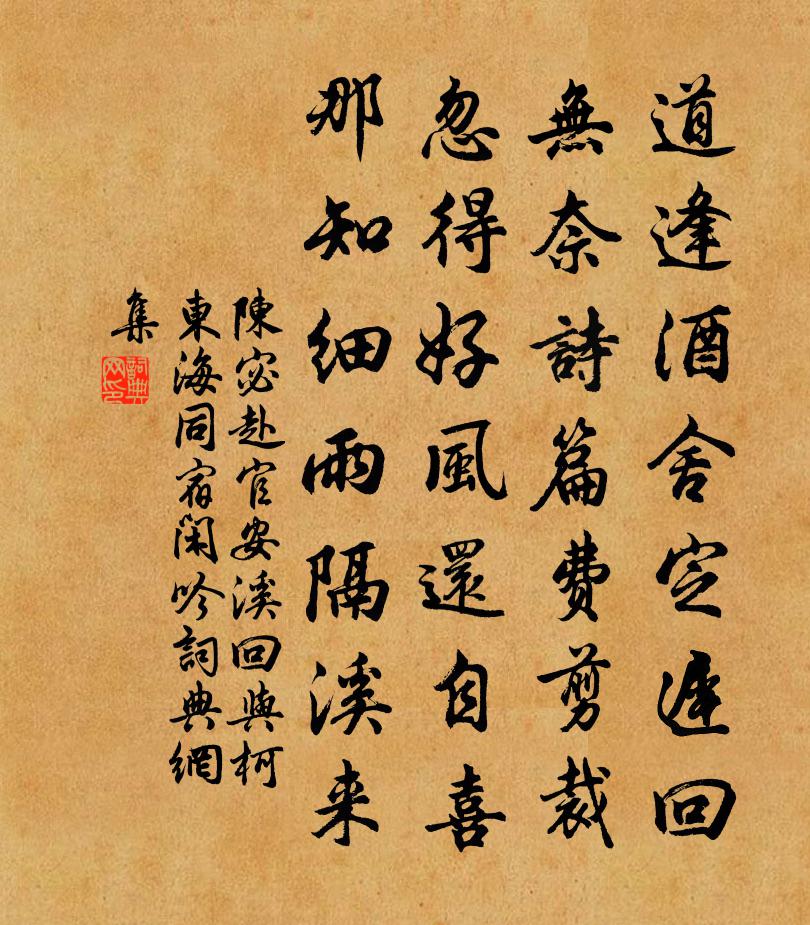 道逢酒舍定遲回
無奈詩篇費剪裁
忽得好風還自喜
那知細雨隔溪来
陳宓赴官安溪回與柯
東海同宿閑吟詞典網
集
詞典
网印